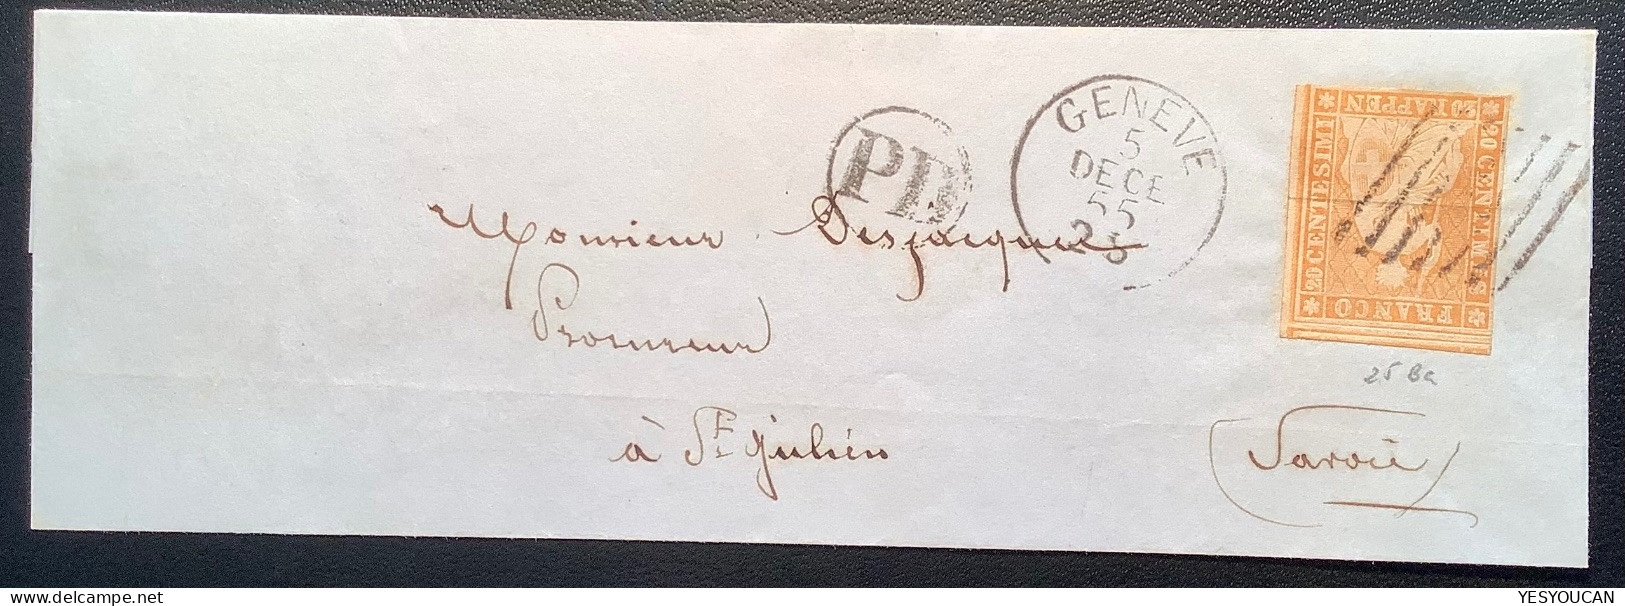 PD
GENEVE
5
DECE
55
FRANCO
20 RAPPEN
20 CENTESIMI
20 CENTIMES
Monsieur Desjacques
Procureur
à St Julien
(Savoie)
25 Ba
YESYOUCAN